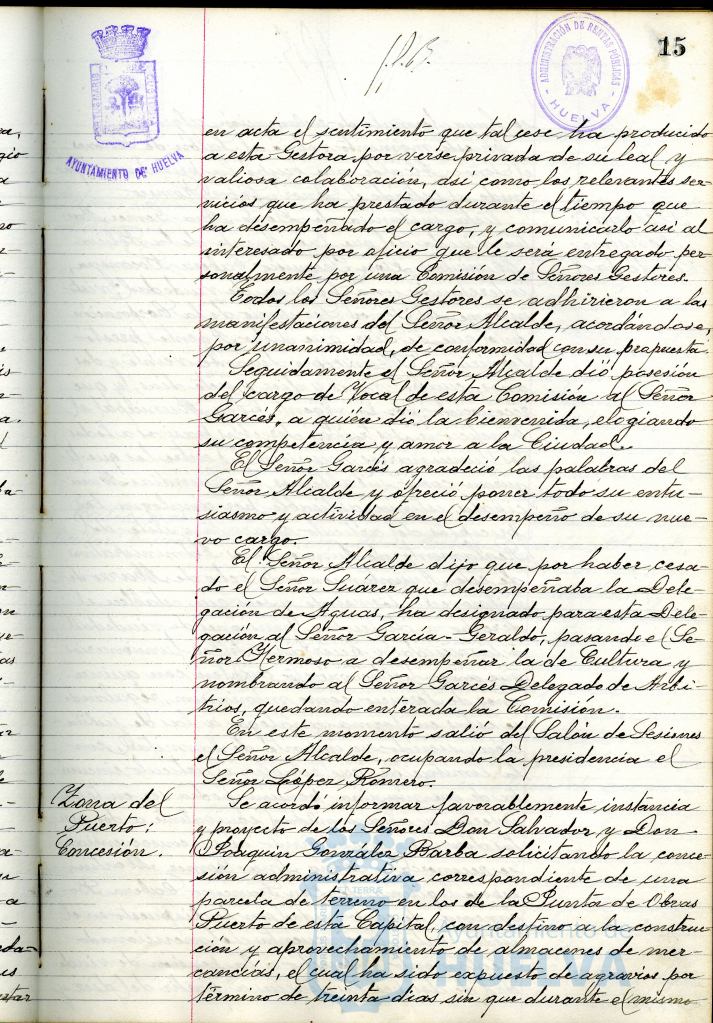 15
AYUNTAMIENTO DE HUELVA
ADMINISTRACIÓN DE RENTAS PÚBLICAS
HUELVA
en acta el sentimiento que tal cese ha producido
a esta Gestora por verse privada de su leal y
valiosa colaboración, así como los relevantes ser-
vicios que ha prestado durante el tiempo que
ha desempeñado el cargo, y comunicarlo así al
interesado por oficio que le será entregado per-
sonalmente por una Comisión de Señores Gestores.
Todos los Señores Gestores se adhirieron a las
manifestaciones del Señor Alcalde, acordándose,
por unanimidad, de conformidad con su propuesta.
Seguidamente el Señor Alcalde dió posesión
del cargo de Vocal de esta Comisión al Señor
Garcés, a quién dió la bienvenida, elogiando
su competencia y amor a la Ciudad.
El Señor Garcés agradeció las palabras del
Señor Alcalde y ofreció poner todo su entu-
siasmo y actividad en el desempeño de su nue-
vo cargo.
El Señor Alcalde dijo que por haber cesa-
do el Señor Suárez que desempeñaba la Dele-
gación de Aguas, ha designado para esta Dele-
gación al Señor García-Geraldo, pasando el Se-
ñor Hermoso a desempeñar la de Cultura y
nombrando al Señor Garcés Delegado de Arbi-
trios, quedando enterada la Comisión.
En este momento salió del Salón de Sesiones
el Señor Alcalde, ocupando la presidencia el
Señor López Romero.
Zona del
Puerto:
Concesión.
Se acordó informar favorablemente instancia
y proyecto de los Señores Don Salvador y Don
Joaquín González Barba solicitando la conce-
sión administrativa correspondiente de una
parcela de terreno en los de la Punta de Obras
Puerto de esta Capital, con destino a la construc-
ción y aprovechamiento de almacenes de mer-
cancías, el cual ha sido expuesto de agravios por
término de treinta dias sin que durante el mismo
Ayuntamiento de
HUELVA